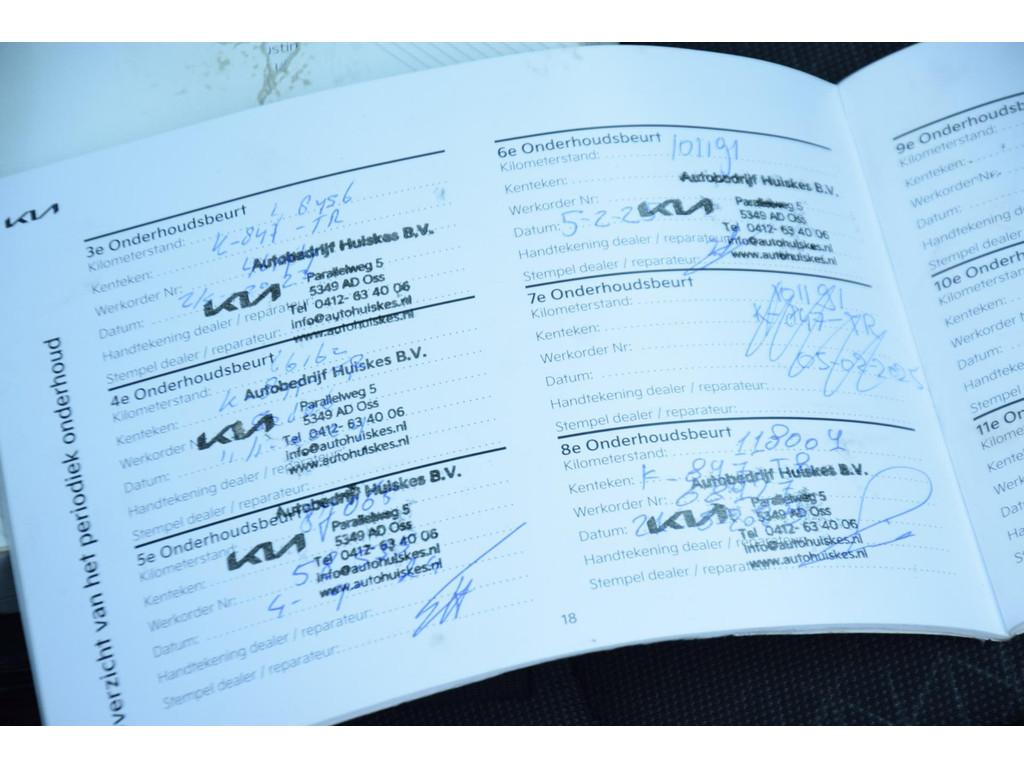 KIA
verzicht van het periodiek onderhoud
3e Onderhoudsbeurt
Kilometerstand: 8456
Kenteken: K-847-TR
Werkorder Nr:
Datum:
Handtekening dealer / reparateur:
Stempel dealer / reparateur:
Autobedrijf Huiskes B.V.
KIA
Parallelweg 5
5349 AD Oss
Tel 0412- 63 40 06
info@autohuiskes.nl
www.autohuiskes.nl
4e Onderhoudsbeurt
Kilometerstand:
Kenteken: K
Werkorder N
Datum:
Handtekening dealer / repara
Stempel dealer / reparateur:
Autobedrijf Huiskes B.V.
KIA
Parallelweg 5
5349 AD Oss
Tel 0412- 63 40 06
info@autohuiskes.nl
www.autohuiskes.nl
5e Onderhoudsbeurt
Kilometerstand:
Kenteken:
Werkorder Nr:
Datum:
Handtekening dealer / reparateur:
Stempel dealer / reparateur:
Autobedrijf Huiskes B.V.
KIA
Parallelweg 5
5349 AD Oss
Tel 0412- 63 40 06
info@autohuiskes.nl
www.autohuiskes.nl
6e Onderhoudsbeurt
Kilometerstand: 101191
Kenteken:
Werkorder Nr:
Datum: 5-2-2
Handtekening dealer / reparateur:
Stempel dealer / reparateur:
Autobedrijf Huiskes B.V.
KIA
Parallelweg 5
5349 AD Oss
Tel 0412- 63 40 06
info@autohuiskes.nl
www.autohuiskes.nl
7e Onderhoudsbeurt
Kilometerstand: 101191
Kenteken: K-847-TR
Werkorder Nr:
Datum: 05-02-2025
Handtekening dealer / reparateur:
Stempel dealer / reparateur:
8e Onderhoudsbeurt
Kilometerstand: 118004
Kenteken: K-847-TR
Werkorder Nr:
Datum: 2
Handtekening dealer / reparateur:
Stempel dealer / reparateur:
Autobedrijf Huiskes B.V.
KIA
Parallelweg 5
5349 AD Oss
Tel 0412- 63 40 06
info@autohuiskes.nl
www.autohuiskes.nl
18
9e Onderhoudsb
Kilometerstand:
Kenteken:
Werkorder Nr:
Datum:
Handtekening deal
Stempel dealer
10e Onderh
Kilometerst
Kenteken:
Werkorder
Datum:
Handteke
Stempel
11e On
Kilome
Kente
Werk
Datu
Han
Ste